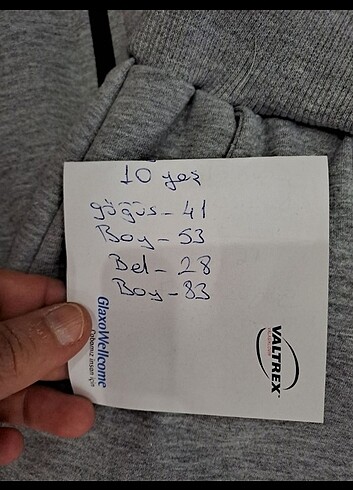 10 yaş
göğüs - 41
Boy - 53
Bel - 28
Boy - 83
VALTREX
GlaxoWellcome
Çabamız insan için